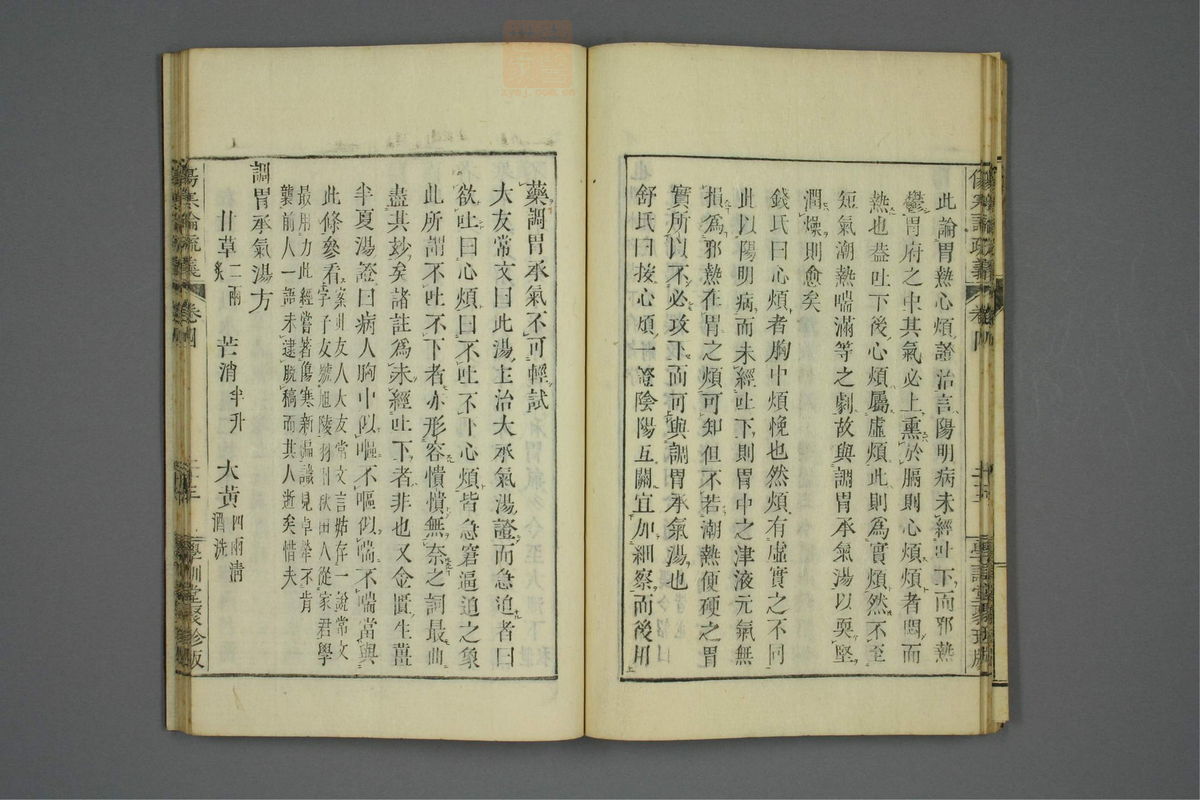 此論胃熱心煩證治言陽明病未經吐下而邪熱
鬱胃府之中其氣必上熏於膈則心煩煩者悶而
熱也蓋吐下後心煩屬虛煩此則為實煩然不至
短氣潮熱喘滿等之劇故與調胃承氣湯以耎堅
潤燥則愈矣
錢氏曰心煩者胸中煩悗也然煩有虛實之不同
此以陽明病而未經吐下則胃中之津液元氣無
損為邪熱在胃之煩可知但不若潮熱便硬之胃
實所以不必攻下而可與調胃承氣湯也
舒氏曰按心煩一證陰陽互關宜加細察而後用
傷寒論疏義 卷四
藥調胃承氣不可輕試
大友常文曰此湯主治大承氣湯證而急迫者曰
欲吐曰心煩曰不吐不下心煩皆急窘逼迫之象
此所謂不吐不下者亦形容憒憒無奈之詞最曲
盡其妙矣諸註為未經吐下者非也又金匱生薑
半夏湯證曰病人胸中似嘔不嘔似喘不喘當與
此條參看
案此友人大友常文言姑存一說常文
字子友號旭陵羽州秋田人從家君學
最用力此經嘗著傷寒新編識見卓犖不肯
襲前人一語未逮脫稿而其人逝矣惜夫
調胃承氣湯方
甘草二兩炙 芒消半升 大黃四兩清酒洗
傷寒論疏義 卷四 學訓堂聚珍版